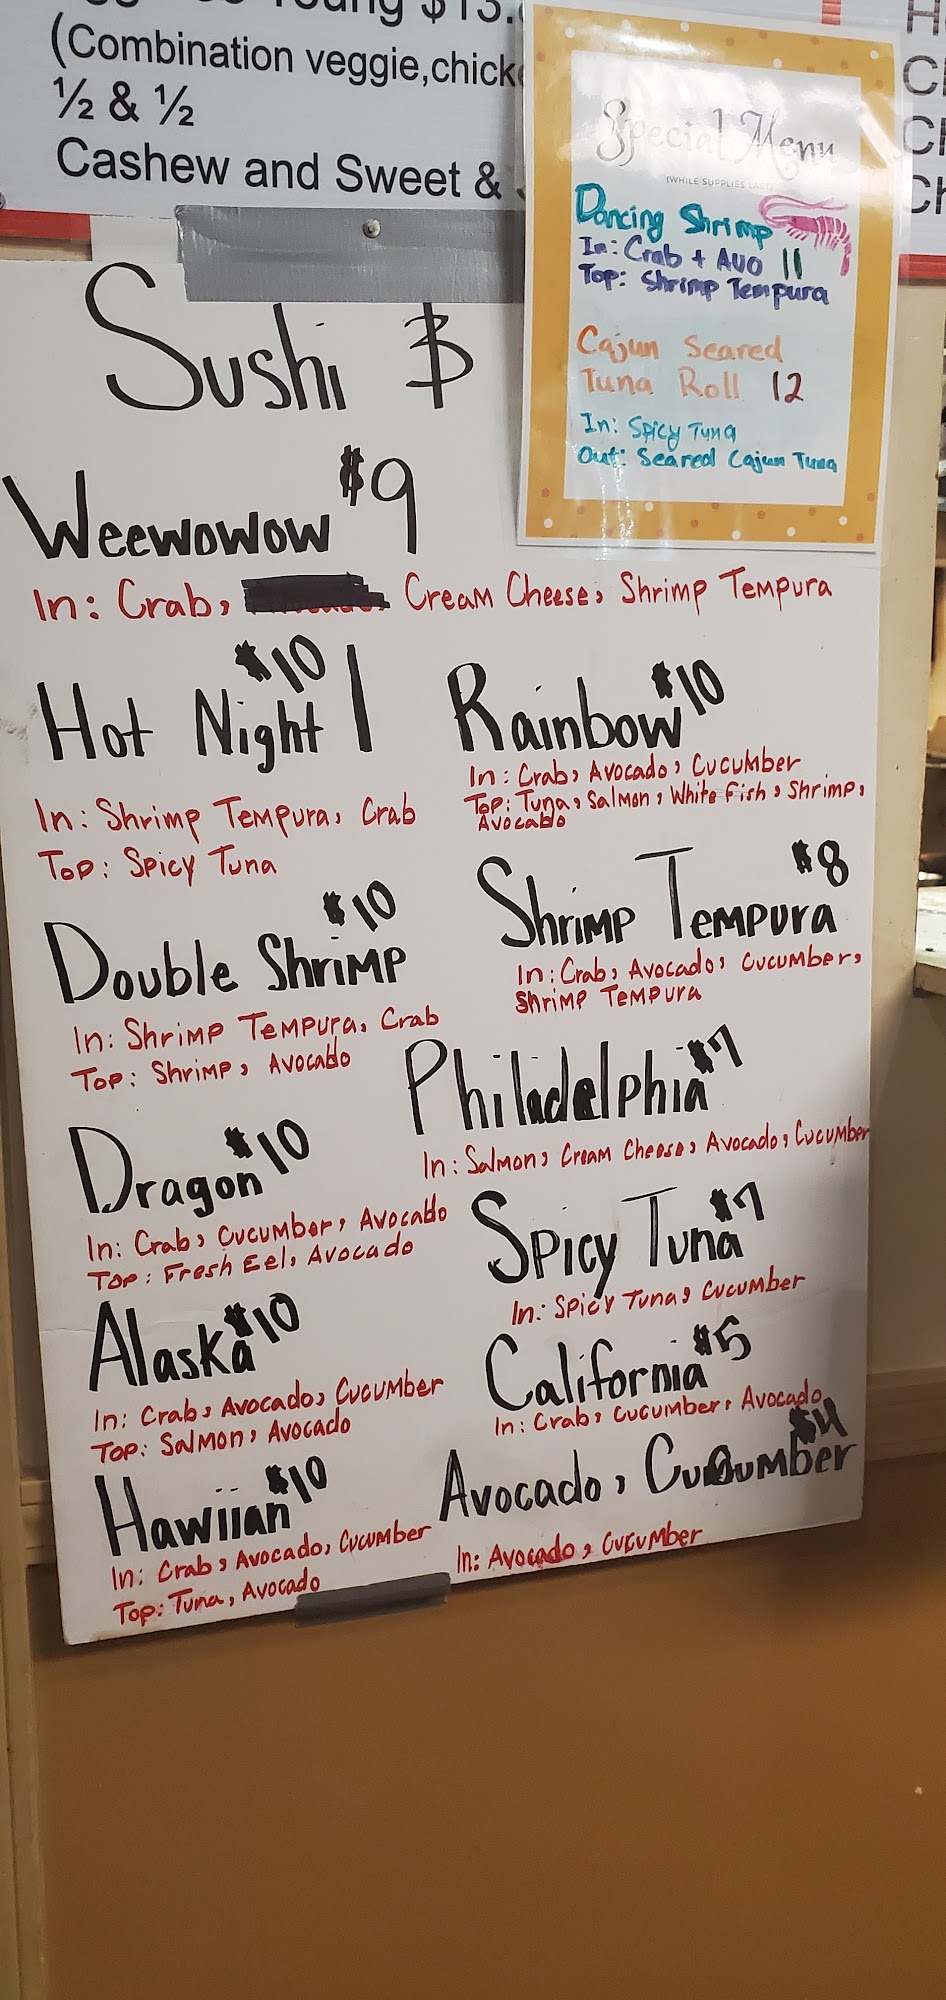 Young $13.
(Combination veggie,chick
½ & ½
Cashew and Sweet &
Special Menu
(WHILE SUPPLIES LAST)
Dancing Shrimp
In: Crab + Avo 11
Top: Shrimp Tempura
Cajun Seared
Tuna Roll 12
In: Spicy Tuna
Out: Seared Cajun Tuna
Sushi $
Weewowow $9
In: Crab, Cream Cheese, Shrimp Tempura
Hot Night 1 $10
In: Shrimp Tempura, Crab
Top: Spicy Tuna
Double Shrimp $10
In: Shrimp Tempura, Crab
Top: Shrimp, Avocado
Dragon $10
In: Crab, Cucumber, Avocado
Top: Fresh Eel, Avocado
Alaska $10
In: Crab, Avocado, Cucumber
Top: Salmon, Avocado
Hawiian $10
In: Crab, Avocado, Cucumber
Top: Tuna, Avocado
Rainbow $10
In: Crab, Avocado, Cucumber
Top: Tuna, Salmon, White Fish, Shrimp,
Avocado
Shrimp Tempura $8
In: Crab, Avocado, Cucumber,
Shrimp Tempura
Philadelphia $7
In: Salmon, Cream Cheese, Avocado, Cucumber
Spicy Tuna $7
In: Spicy Tuna, Cucumber
California $5
In: Crab, Cucumber, Avocado
Avocado, Cucumber $4
In: Avocado, Cucumber